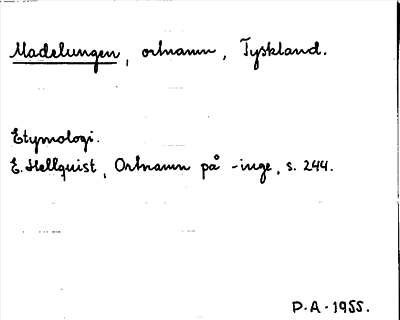 Madelungen, ortnamn, Tyskland.
Etymologi.
E. Hellquist, Ortnamn på -inge, s. 244.
P.A. 1955.